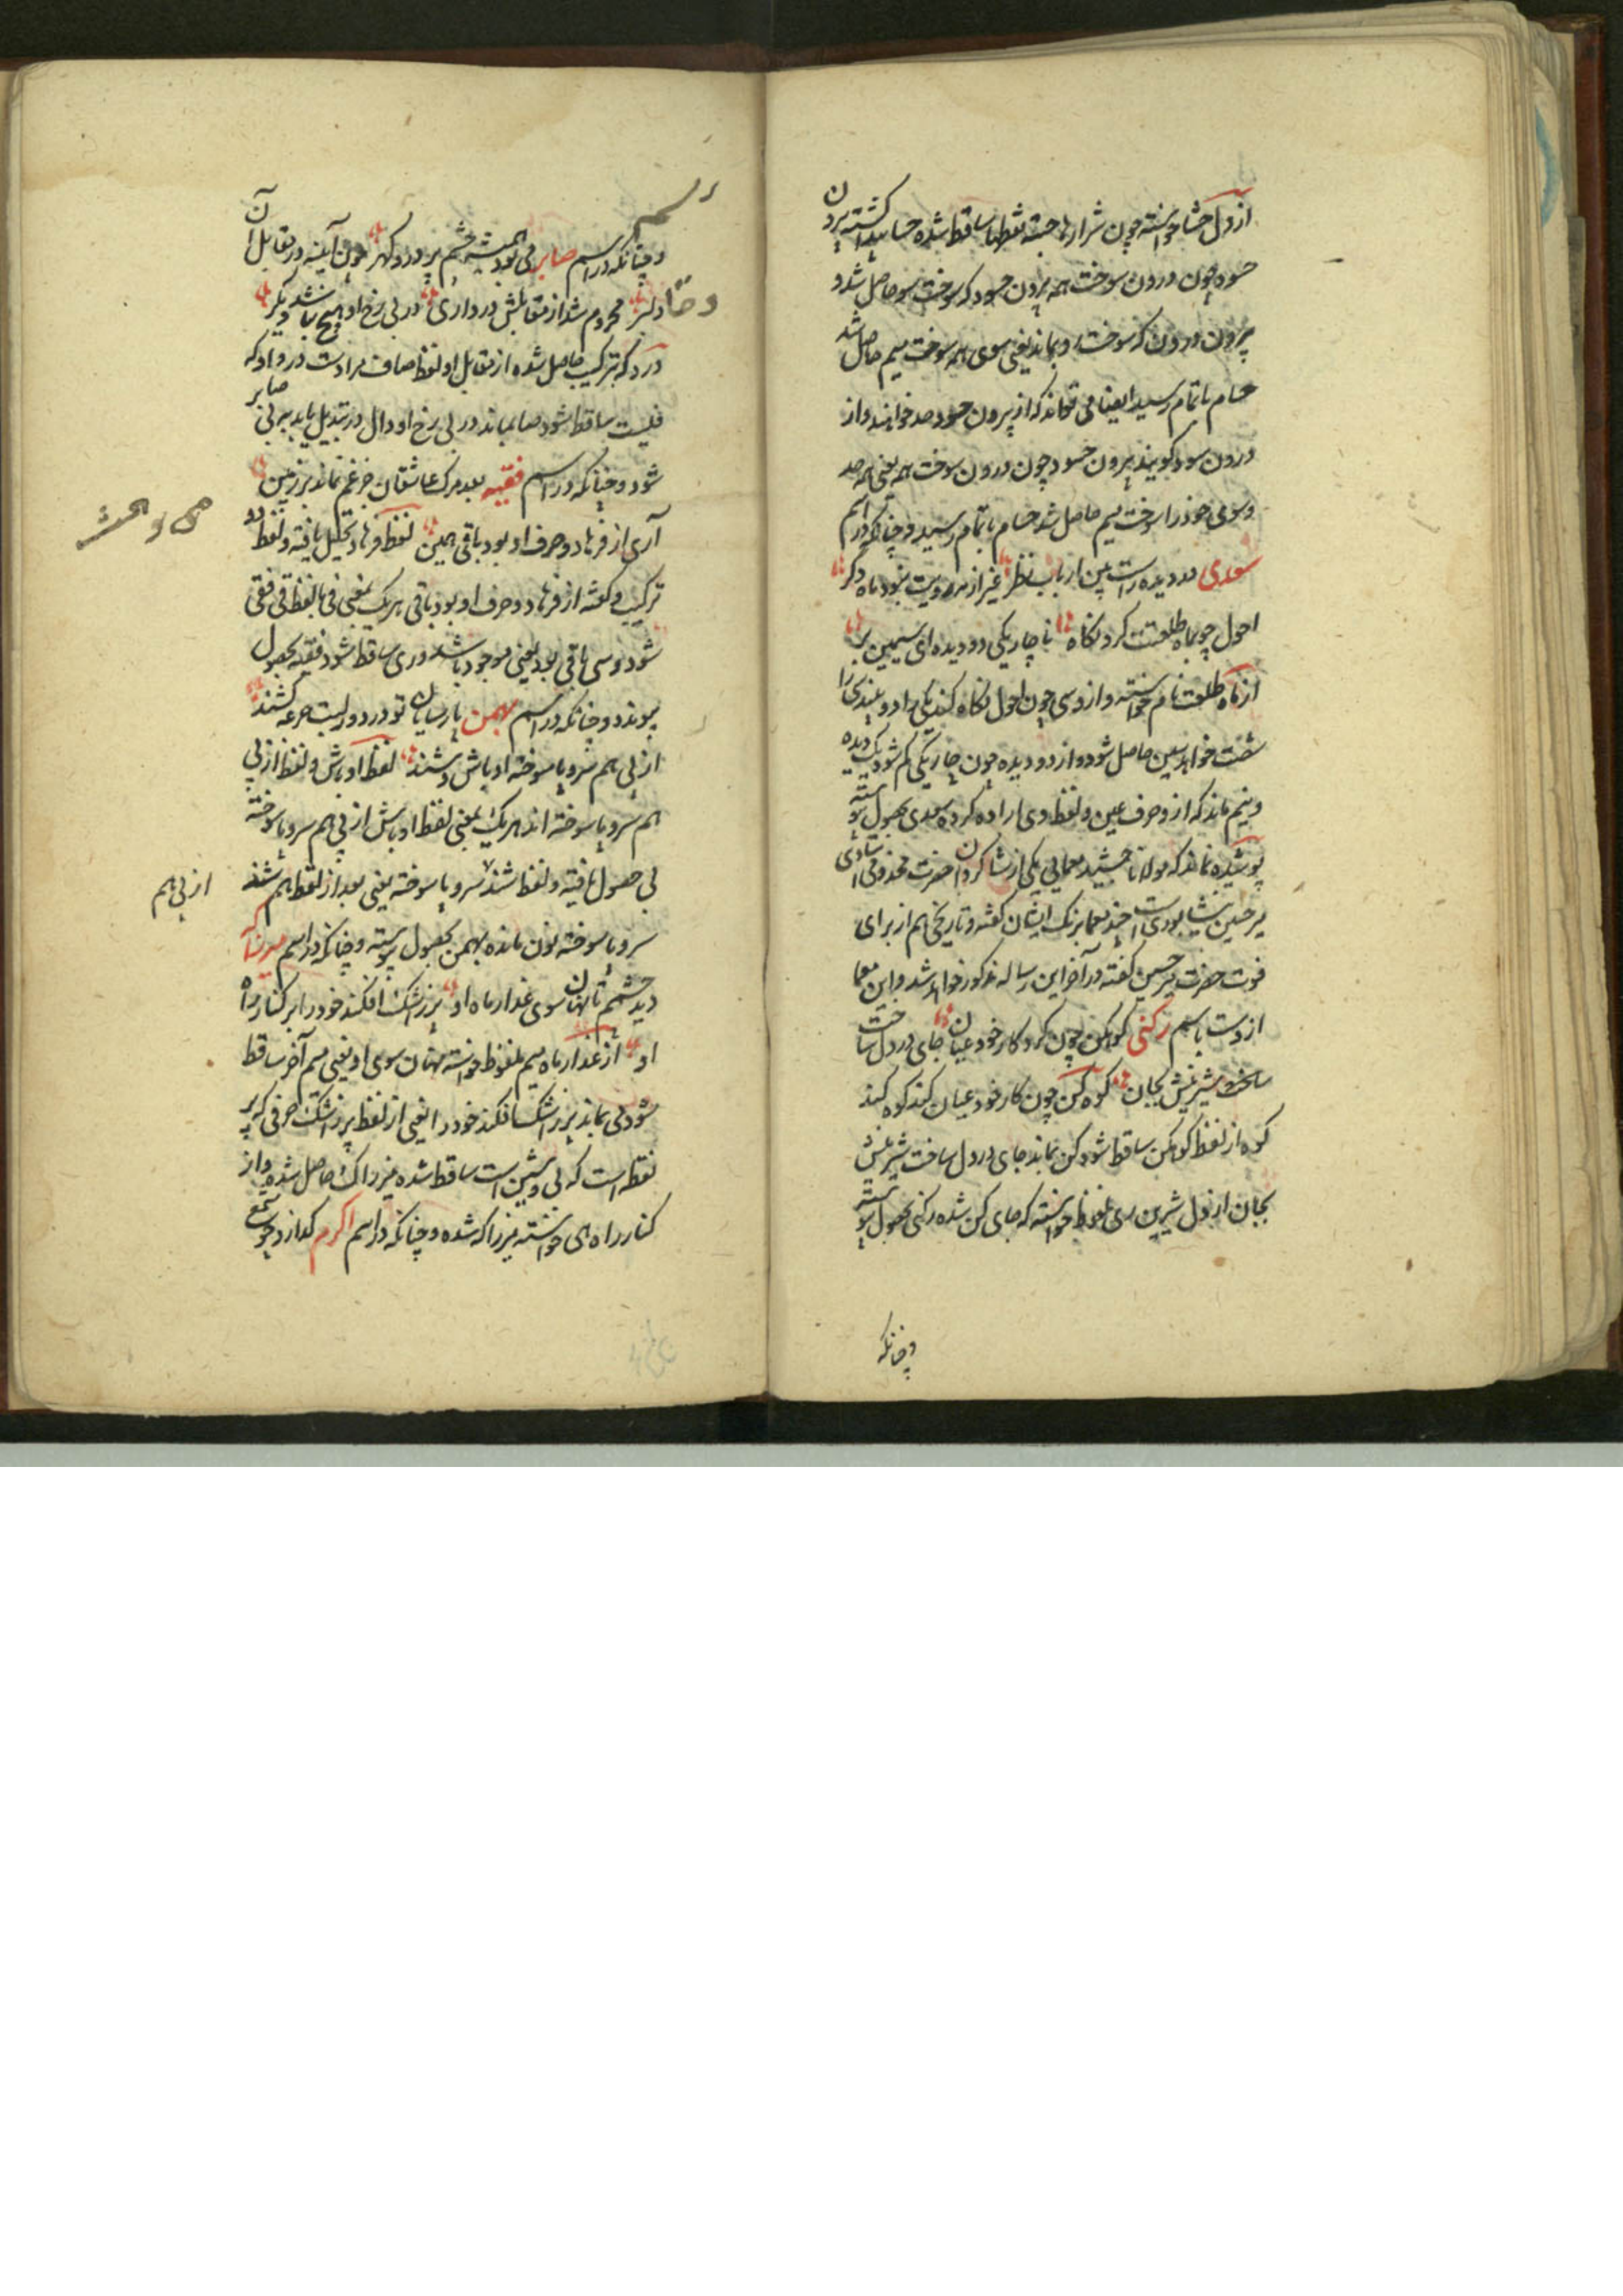 از دل حشا خواسته چون شرارها جسته نقطها ساقط شده حسا پیدا گشته بیرون
حسود چون درون سوخت همه بیرون حسود که سوخت سو حاصل شد و
بیرون درون که سوخت و بماند یعنی سوی همه سوخت میم حاصل شد
حسام باتمام رسید ایضا می تواند که از بیرون حسود حد خواهند و از
درون سود گویند بیرون حسود چون درون سوخت همه یعنی همه حد
و سوی خود را سوخت میم حاصل شد حسام باتمام رسید و چنانکه در اسم
سعدی دیده راست بین ارباب نظر غیر از مه رویت نبود ماه دگر
احول چو بماه طلعتت کرد نگاه ناچار یکی دو دیده ای سیمین بر
از ماه طلعت نام خواسته و از وسی چون احول نگاه کند یکی را دو بیند یکی را
شصت خواهد عین حاصل شود و از دو دیده چون چار یکی کم شود یک دیده
و نیم ماند که از و حرف عین و لفظ دی اراده کرده سعدی بحصول پیوسته
پوشیده نماند که مولانا جمشید معمایی یکی از شاگردان حضرت مخدومی استادی
میر حسین نیشابوری است چند معما برنک ایشان گفته و تاریخی هم از برای
فوت حضرت میر حسین گفته در آخر این رساله مذکور خواهد شد و این معما
ازوست باسم رکنی کوهکن چون کرد کار خود عیان جای در دل ساخت
ساخت شیرینش بجان کوه کن چون کار خود عیان کند کوه کند
کوه از لفظ کوهکن ساقط شود کن بماند جای در دل ساخت شیرینش
بجان از دل شیرین ری ملفوظ خواسته که جای کن شده رکنی بحصول پیوسته
و چنانکه
و چنانکه در اسم صابر بی بود همیشه چشم پر درد و گهر چون آینه در مقابل آن
دلبر محروم شد از مقابلش در داری در بی رخ او هیچ نباشد دیگر
درد که بترکیب حاصل شده از مقابل او لفظ صاف مرادست در و او که
فلیست ساقط شود صا بماند در بی رخ او دال در تبدیل یابد ببر بی صابر
شود و چنانکه در اسم فقیه بعد مرک عاشقان جز غم نماند بر زمین
آری از فرهاد دو حرف او بود باقی همین لفظ فرهاد تحلیل یافته و لفظ دو
ترکیب و گفته از فرها دو حرف او بود باقی هر یک بمعنی فی با لفظ قی فقی
شود و سی باقی بود یعنی موجود باشد و ری ساقط شود فقیه بحصول
پیوندد و چنانکه در اسم بهمن پارسایان تو در دور لبت جرعه کشند
از پی هم سر و پا سوخته اوباش وشند لفظ اوباش و لفظ از پی
هم سر و پا سوخته اند هر یک بمعنی لفظ اوباش از پی هم سر و پا سوخته
بی حصول یافته و لفظ شند سر و پا سوخته یعنی بعد از لفظ هم شند
از پی هم
سر و پا سوخته نون مانده بهمن بحصول پیوسته و چنانکه در اسم میرزا
دید چشم تا نهان سوی عذار ماه او پرزاشک افکند خود را بر کنار راه
او از عذار ماه میم ملفوظ خواسته نهان سوی او یعنی میم آخر ساقط
شود می بماند پرزاشک افکند خود را یعنی از لفظ پرزاشک حرفی که پر
نقطه است که پی و شین است ساقط شده میرزاک حاصل شده و از
کنار راه هی خواسته میرزا که شده و چنانکه در اسم اکرم گدازد چو شمع